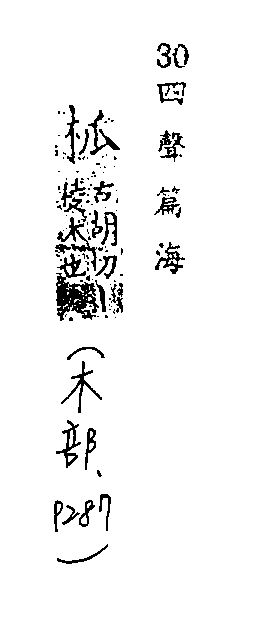 30四聲篇海
柧古胡切｜
棱木也
(木部、P287)